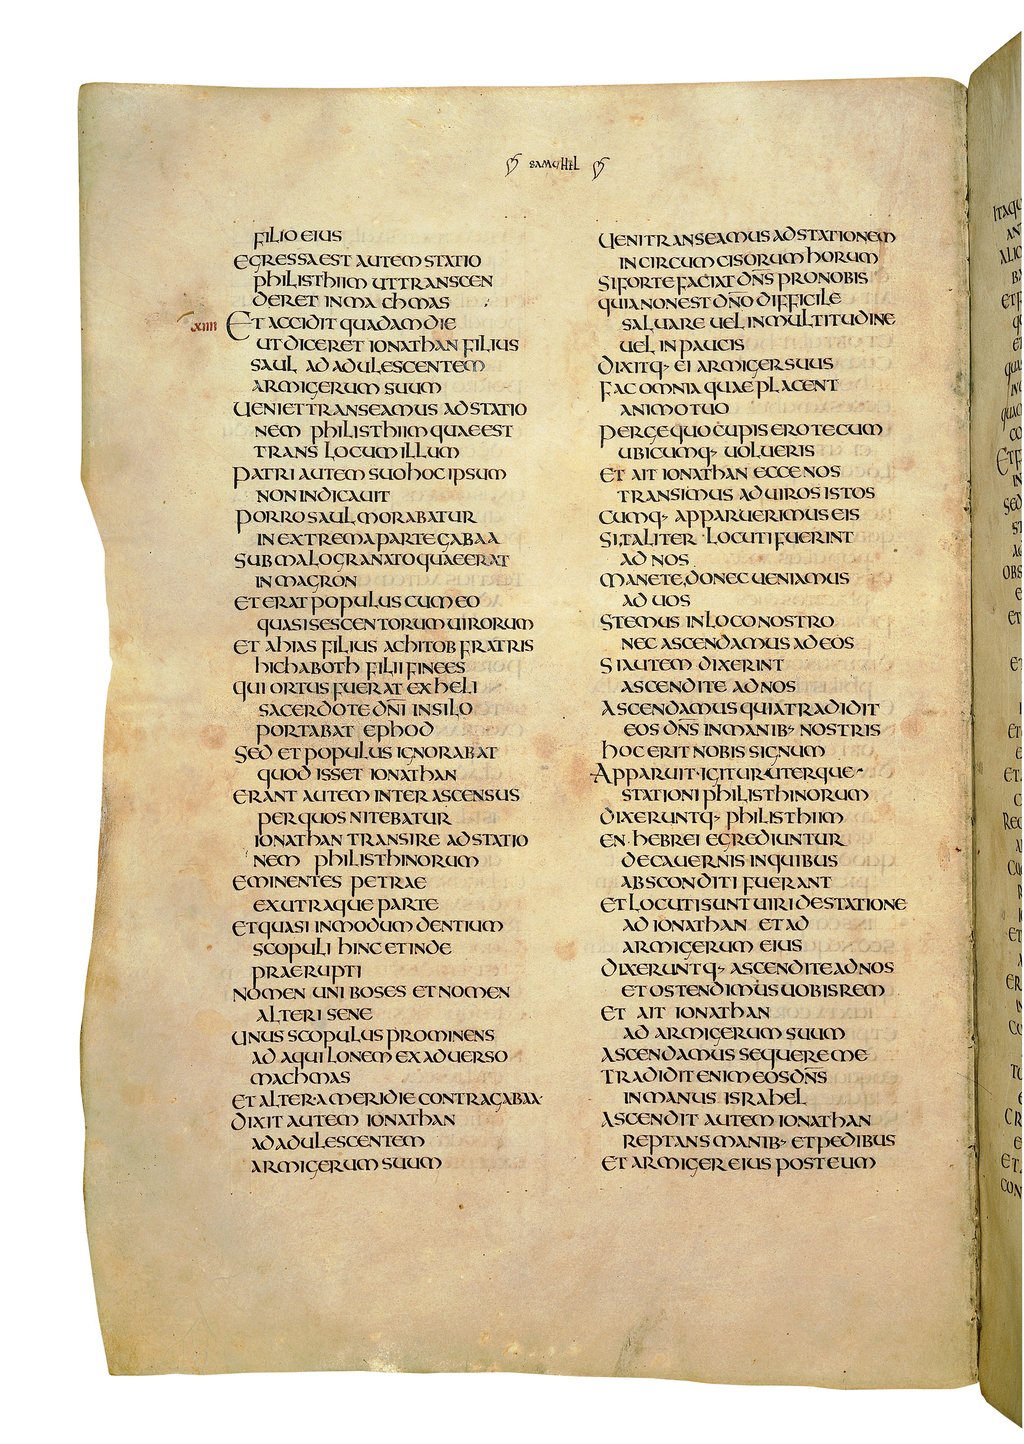 SAMUHEL
FILIO EIUS
EGRESSA EST AUTEM STATIO
PHILISTHIIM UT TRANSCEN
DERET IN MACHMAS
XIIII ET ACCIDIT QUADAM DIE
UT DICERET IONATHAN FILIUS
SAUL AD ADULESCENTEM
ARMIGERUM SUUM
UENI ET TRANSEAMUS AD STATIO
NEM PHILISTHIIM QUAE EST
TRANS LOCUM ILLUM
PATRI AUTEM SUO HOC IPSUM
NON INDICAUIT
PORRO SAUL MORABATUR
IN EXTREMA PARTE GABAA
SUB MALOGRANATO QUAE ERAT
IN MAGRON
ET ERAT POPULUS CUM EO
QUASI SESCENTORUM UIRORUM
ET AHIAS FILIUS ACHITOB FRATRIS
HICHABOTH FILII FINEES
QUI ORTUS FUERAT EX HELI
SACERDOTE DN̄I IN SILO
PORTABAT EPHOD
SED ET POPULUS IGNORABAT
QUOD ISSET IONATHAN
ERANT AUTEM INTER ASCENSUS
PER QUOS NITEBATUR
IONATHAN TRANSIRE AD STATIO
NEM PHILISTHINORUM
EMINENTES PETRAE
EX UTRAQUE PARTE
ET QUASI IN MODUM DENTIUM
SCOPULI HINC ET INDE
PRAERUPTI
NOMEN UNI BOSES ET NOMEN
ALTERI SENE
UNUS SCOPULUS PROMINENS
AD AQUILONEM EX ADUERSO
MACHMAS
ET ALTER A MERIDIE CONTRA GABAA·
DIXIT AUTEM IONATHAN
AD ADULESCENTEM
ARMIGERUM SUUM
UENI TRANSEAMUS AD STATIONEM
INCIRCUMCISORUM HORUM
SI FORTE FACIAT DN̄S PRO NOBIS
QUIA NON EST DN̄O DIFFICILE
SALUARE UEL IN MULTITUDINE
UEL IN PAUCIS
DIXITQ· EI ARMIGER SUUS
FAC OMNIA QUAE PLACENT
ANIMO TUO
PERGE QUO CUPIS ERO TECUM
UBICUMQ· UOLUERIS
ET AIT IONATHAN ECCE NOS
TRANSIMUS AD UIROS ISTOS
CUMQ· APPARUERIMUS EIS
SI TALITER LOCUTI FUERINT
AD NOS
MANETE DONEC UENIAMUS
AD UOS
STEMUS IN LOCO NOSTRO
NEC ASCENDAMUS AD EOS
SI AUTEM DIXERINT
ASCENDITE AD NOS
ASCENDAMUS QUIA TRADIDIT
EOS DN̄S IN MANIB· NOSTRIS
HOC ERIT NOBIS SIGNUM
APPARUIT·IGITUR·UTERQUE·
STATIONI PHILISTHINORUM
DIXERUNTQ· PHILISTHIIM
EN HEBREI EGREDIUNTUR
DE CAUERNIS IN QUIBUS
ABSCONDITI FUERANT
ET LOCUTI SUNT UIRI DE STATIONE
AD IONATHAN ET AD
ARMIGERUM EIUS
DIXERUNTQ· ASCENDITE AD NOS
ET OSTENDIMUS UOBIS REM
ET AIT IONATHAN
AD ARMIGERUM SUUM
ASCENDAMUS SEQUERE ME
TRADIDIT ENIM EOS DN̄S
IN MANUS ISRAHEL
ASCENDIT AUTEM IONATHAN
REPTANS MANIB· ET PEDIBUS
ET ARMIGER EIUS POST EUM